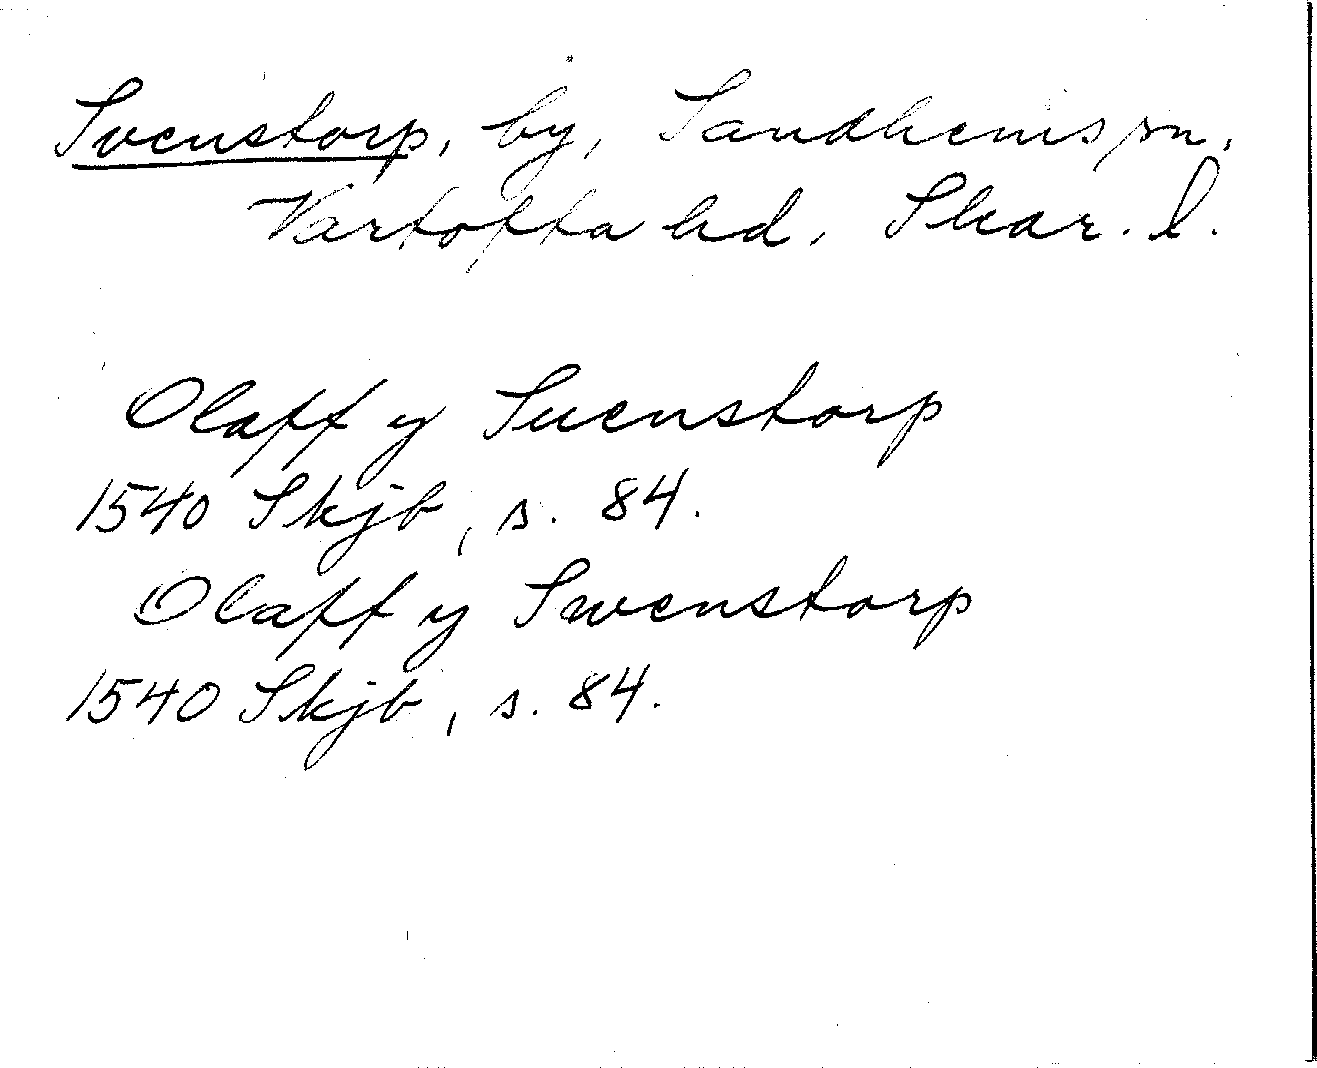 Svenstorp, by, Sandhems sn,
Vartofta hd, Skar. l.
Olaff y Suenstorp
1540 Skjb, s. 84.
Olaff y Swenstorp
1540 Skjb, s. 84.